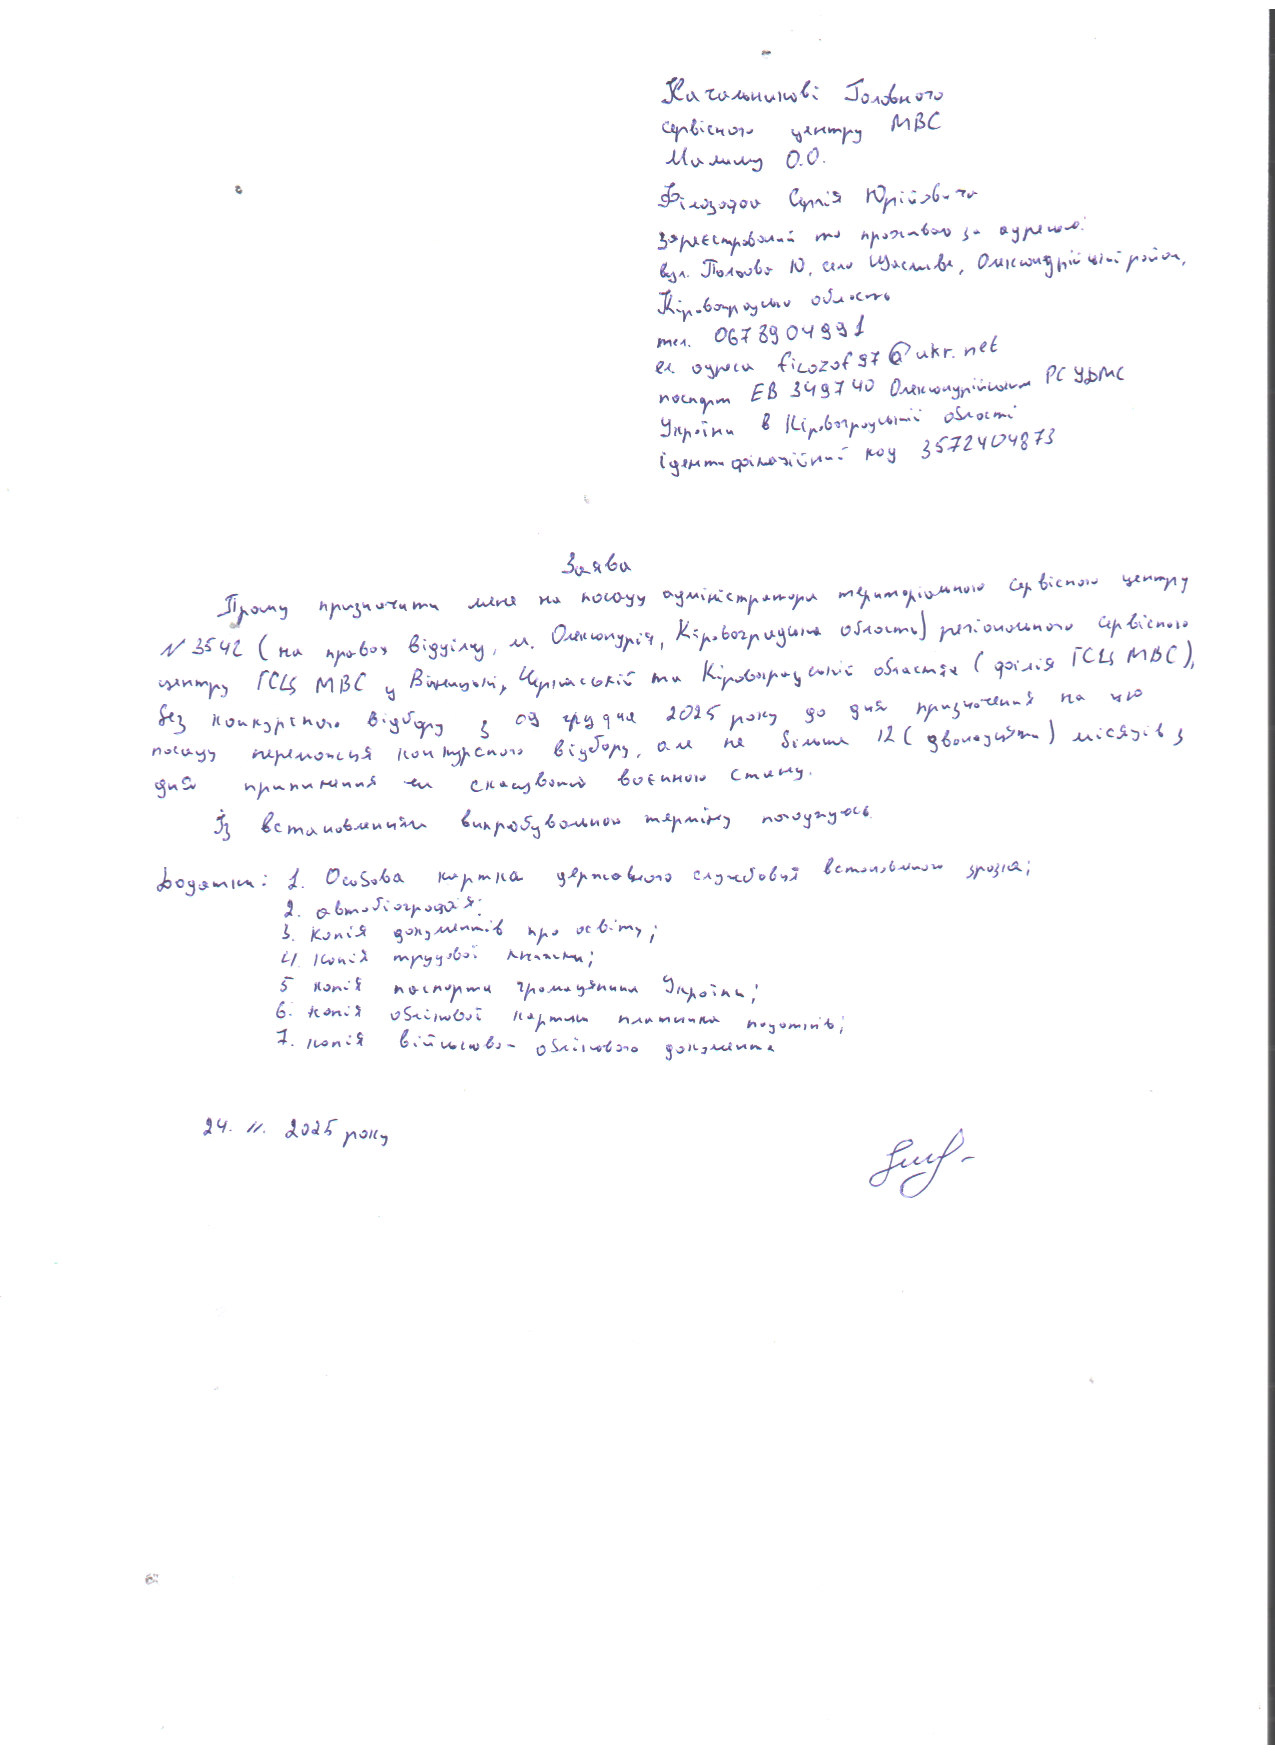 Начальникові Головного
сервісного центру МВС
Малишу О.О.
Філозофа Сергія Юрійовича
зареєстрований та проживаю за адресою:
вул. Польова 10, село Щасливе, Олександрійський район,
Кіровоградська область
тел. 0678904991
ел. адреса filozof97@ukr.net
паспорт ЕВ 349740 Олександрійським РС УДМС
України в Кіровоградській області
ідентифікаційний код 3572404873
Заява
Прошу призначити мене на посаду адміністратора територіального сервісного центру
N 3542 (на правах відділу, м. Олександрія, Кіровоградська область) регіонального сервісного
центру ГСЦ МВС у Вінницькій, Черкаській та Кіровоградській областях (філія ГСЦ МВС),
без конкурсного відбору з 09 грудня 2025 року до дня призначення на цю
посаду переможця конкурсного відбору, але не більше 12 (дванадцяти) місяців з
дня припинення чи скасування воєнного стану.
Із встановленням випробувального терміну погоджуюсь.
Додатки: 1. Особова картка державного службовця встановленого зразка;
2. автобіографія;
3. Копія документів про освіту;
4. Копія трудової книжки;
5 копія паспорта громадянина України;
6. копія облікової картки платника податків;
7. копія військово-облікового документа
24. 11. 2025 року